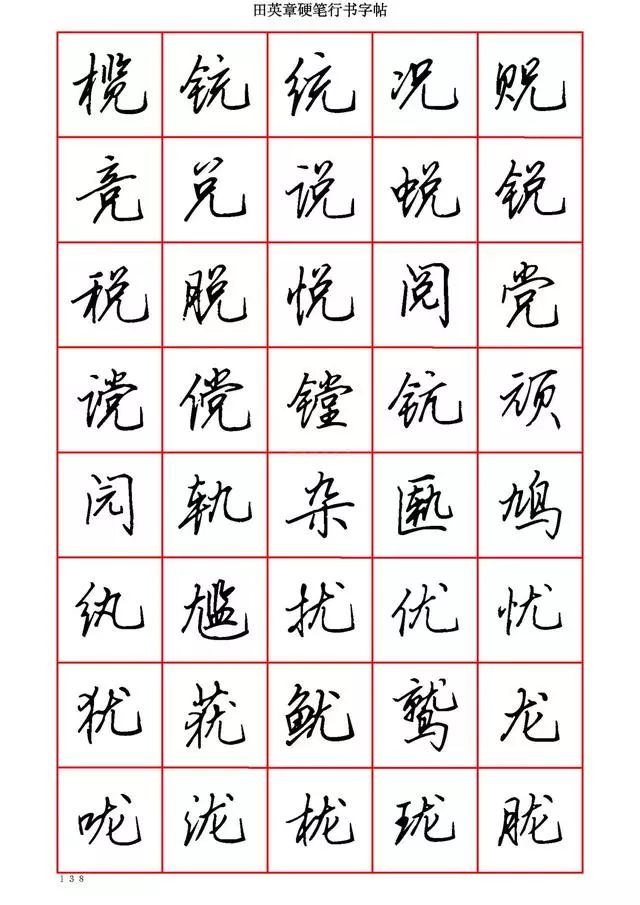 田英章硬笔行书字帖
榄 铳 统 况 贶
竞 兑 说 蜕 锐
税 脱 悦 阅 党
谠 傥 镋 钪 顽
轨 杂 匦 鸠
纨 尴 扰 优 忧
犹 莸 鱿 鹫 龙
咙 泷 栊 珑 胧
138